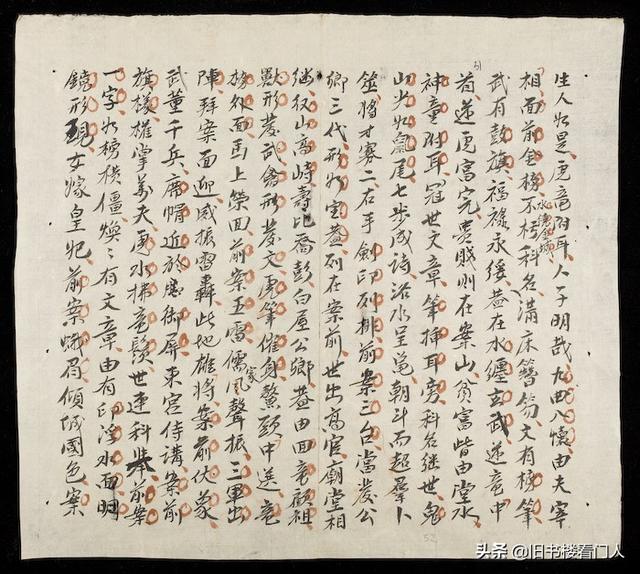 生人如是虎高附耳人子明哉九曲入懷由夫宰
相面前金榜不標科名滿床簪笏文有榜筆
水繞金城
武有鼓旗福祿永綏蓋在水纏玄武逆竜中
首逆虎富完貴賤則在案山貧富皆由堂水
神童附耳冠世文章筆插耳旁科名继世龟
山尖如氣尾七步成诗浴水呈龟朝斗而超羣卜
筮將才寡二右手劍印列排前案三台當發公
卿三代形如宝蓋列在案前世出高官廟堂相
继後山高峙壽比喬彭白屋公卿蓋由回竜顧祖
獸形發武禽形發文虎筆催身鰲頭中選竜
榜外面馬上榮回前案玉雷儒風聲振三軍出
家
陣拜案面迎威振雷轟此地雄將案前伏象
武董千兵席帽近於御屏東宮侍講案前
旗樣權掌萬夫虎水拂竜鬚世連科舉前案
一字如榜橫僵煥々有文章由有印浮水面明
鏡形現女嫁皇妃前案蛾眉傾城國色案
51
52
头条@旧书楼看门人